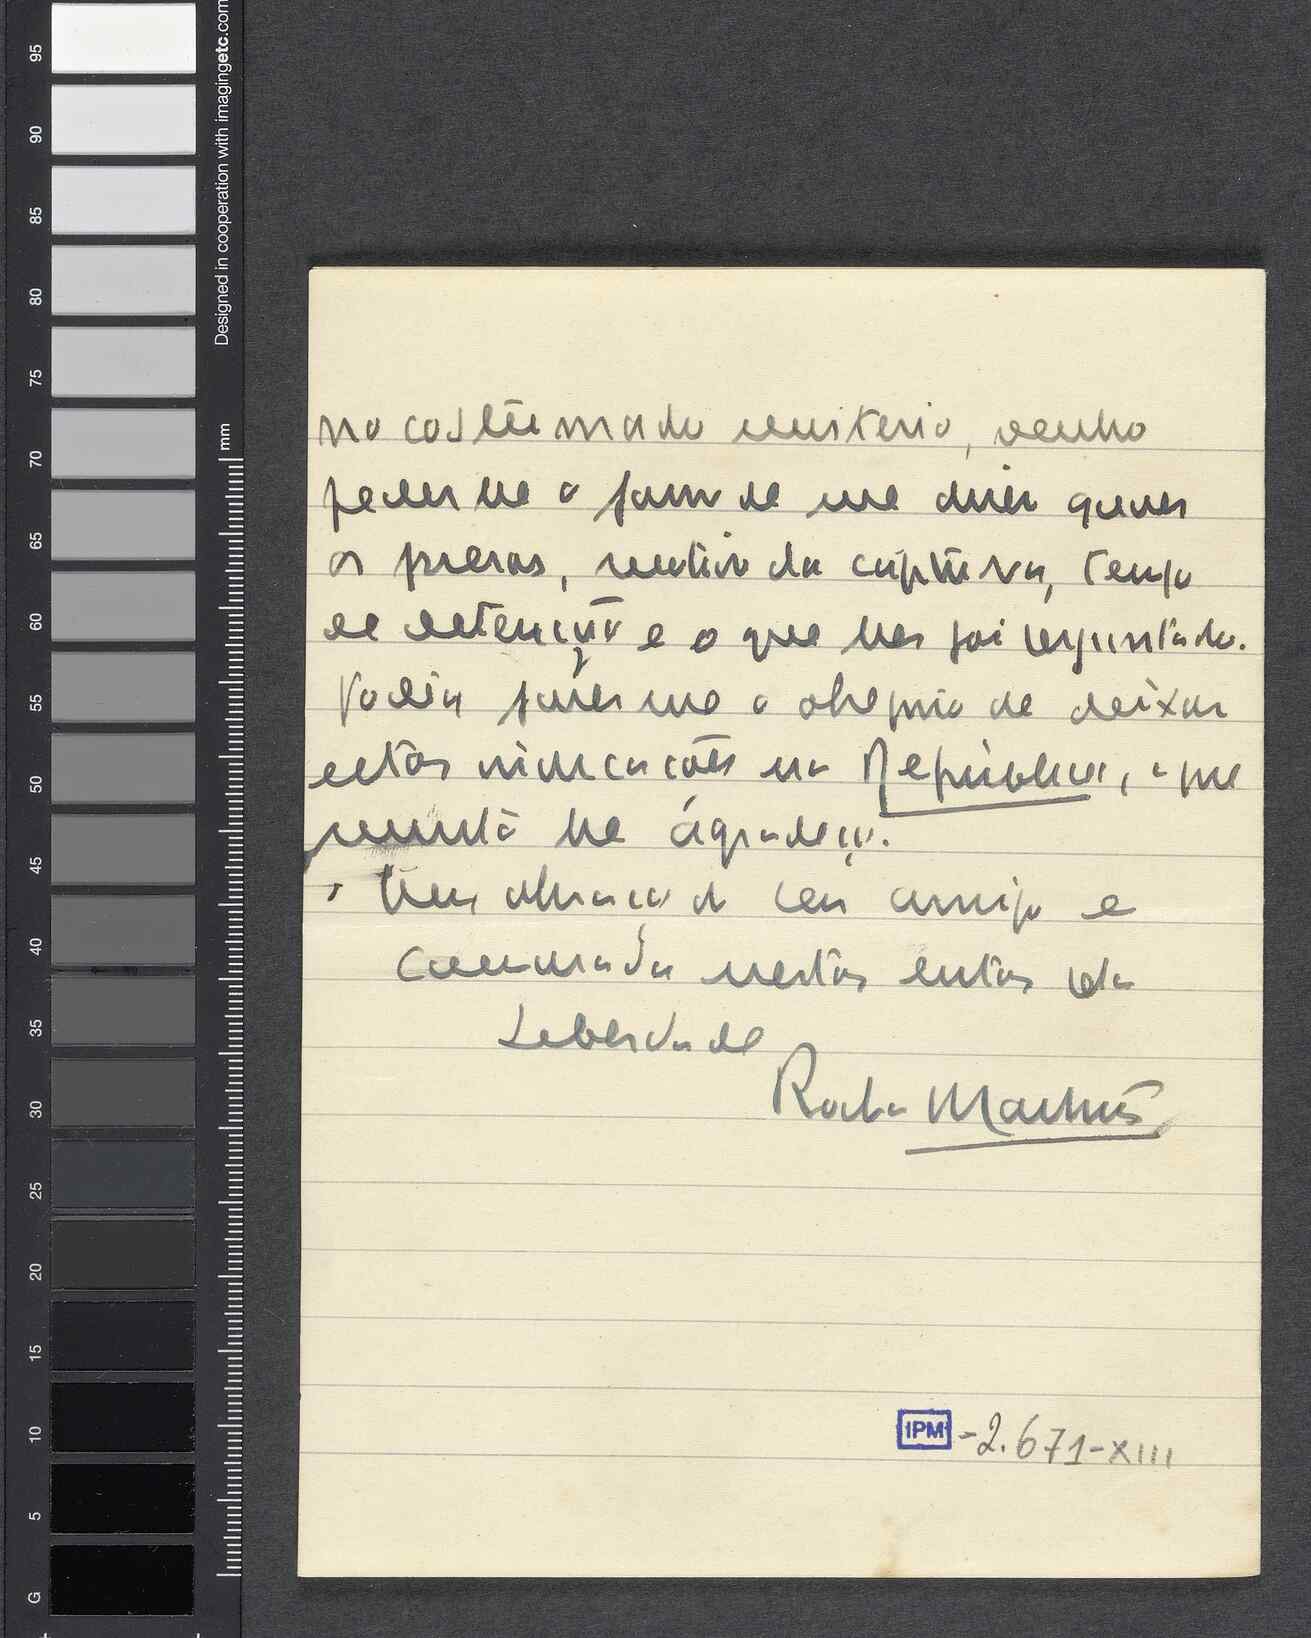 95
90
85
80
75
70
65
60
55
50
45
40
35
30
25
20
15
10
5
G
Designed in cooperation with imagingetc.com
mm
no costumado misterio, venho
pedir-lhe o favor de me dizer quaes
os presos, motivo da captura, tempo
de detenção e o que lhes foi
Podia fazer-me o obsequio de deixar
estas indicações na Republica, o que
muito lhe agradeço.
Um abraço do seu amigo e
camarada nestas lutas da
Liberdade
Rocha Martins
IPM -2.671-XIII